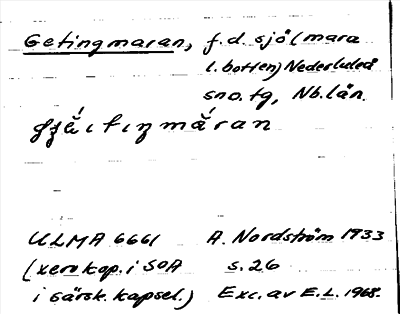 Getingmaran, f.d. sjö (mara
i. botten) Nederluleå
sn o. tg, Nb. län.
ULMA 6661 A. Nordström 1933
(xerokop. i SOA s. 26
i särsk. kapsel.) Exc. av E.L. 1968.